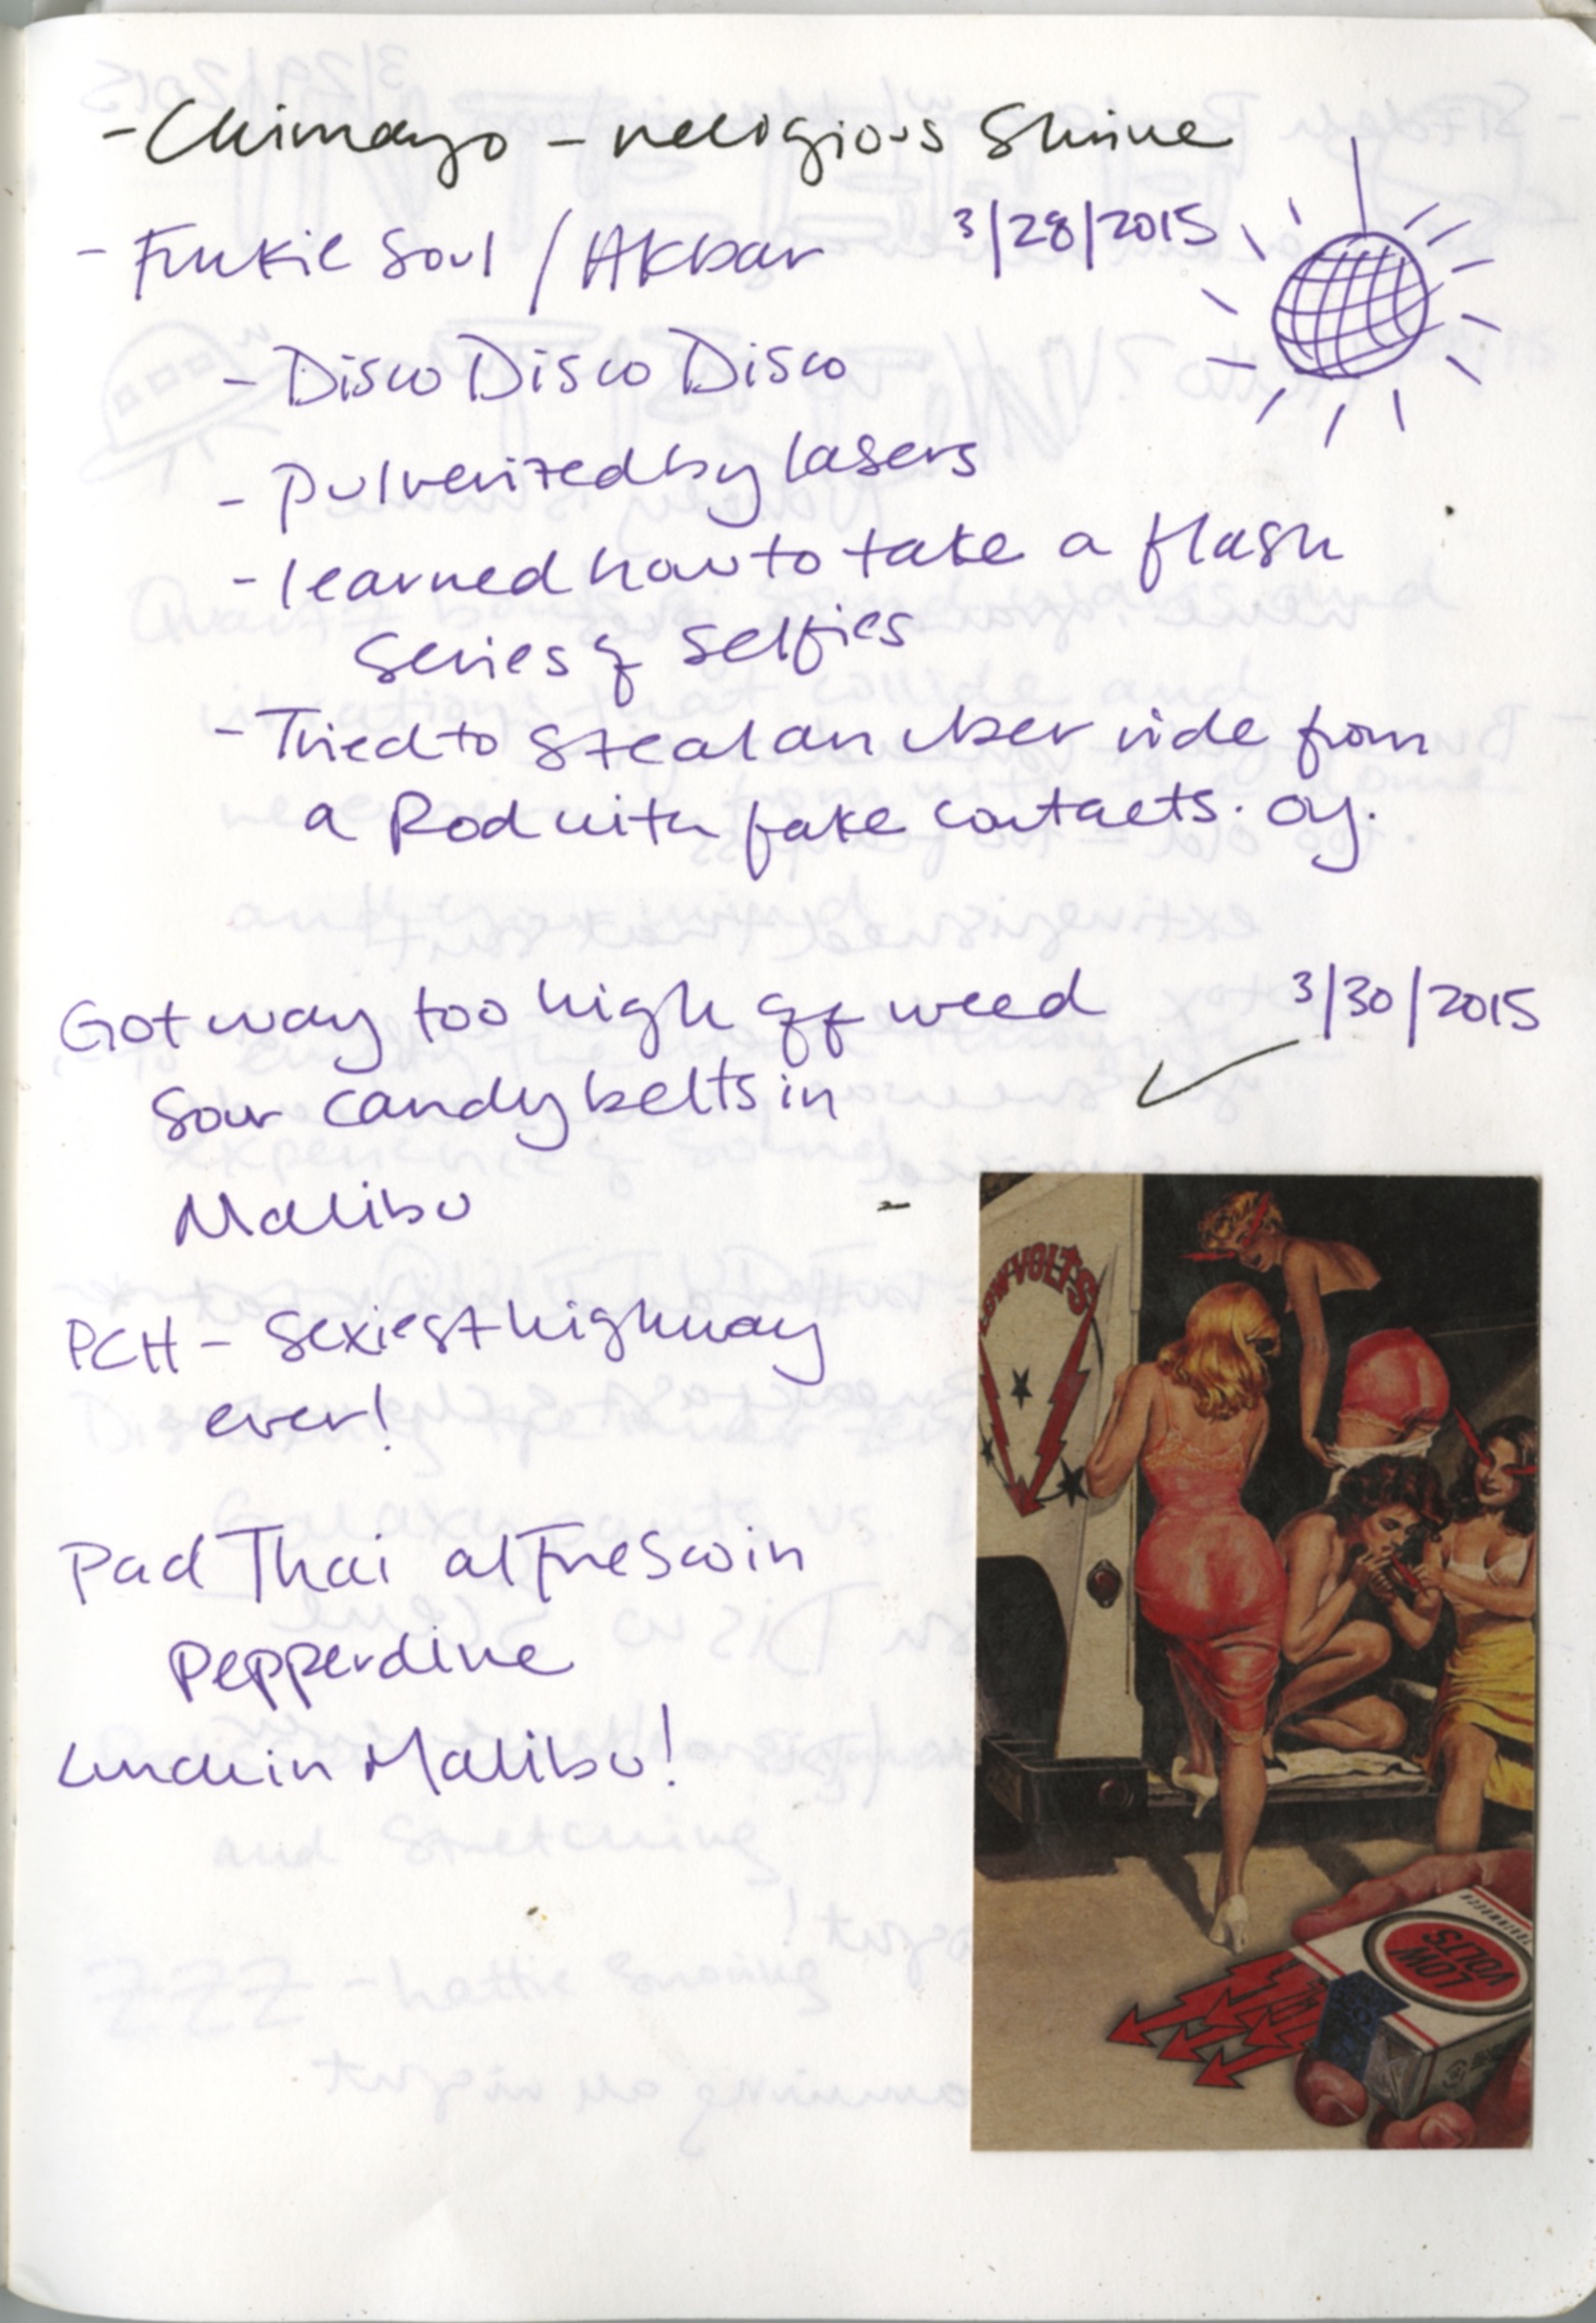 - Chimayo - religious Shrine
- Funkie Soul / Akbar 3/28/2015
- Disco Disco Disco
- pulverized by lasers
- learned how to take a flash
series of selfies
- Tried to steal an uber ride from
a Rod with fake contacts. oy.
Got way too high off weed 3/30/2015
Sour candy belts in
Malibu
-
PCH - Sexiest highway
ever!
Pad Thai al Fresco in
Pepperdine
Lunch in Malibu!
LOW VOLTS
LOW
VOLTS